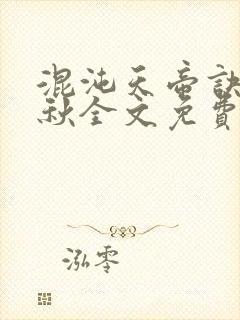 混沌天帝訣
秋全文免費
泓零